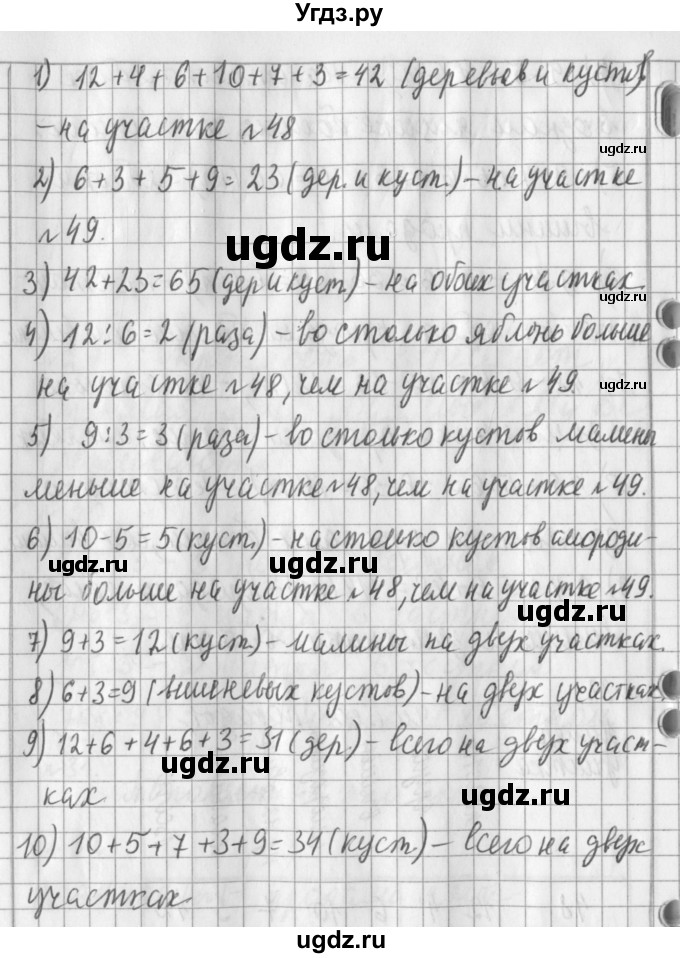 Угдз.ру
1) 12+4+6+10+7+3=42 (деревьев и кустов)
– на участке №48
ugdz.ru
2) 6+3+5+9=23 (дер. и куст.) – на участке
ugdz.ru
№49.
ugdz.ru
3) 42+23=65 (дер и куст) – на обоих участках.
ugdz.ru
4) 12:6=2 (раза) – во столько яблонь больше
на участке №48, чем на участке №49
ugdz.ru
5) 9:3=3 (раза) – во столько кустов малины
меньше на участке №48, чем на участке №49.
6) 10-5=5 (куст.) – на столько кустов смороди-
ugdz.ru ugdz.ru
ны больше на участке №48, чем на участке №49.
ugdz.ru
7) 9+3=12 (куст.) – малины на двух участках.
8) 6+3=9 (вишневых кустов) – на двух участках
9) 12+6+4+6+3=31 (дер) – всего на двух участ-
ugdz.ru
ках
ugdz.ru
10) 10+5+7+3+9=34 (куст.) – всего на двух
участках
ugdz.ru